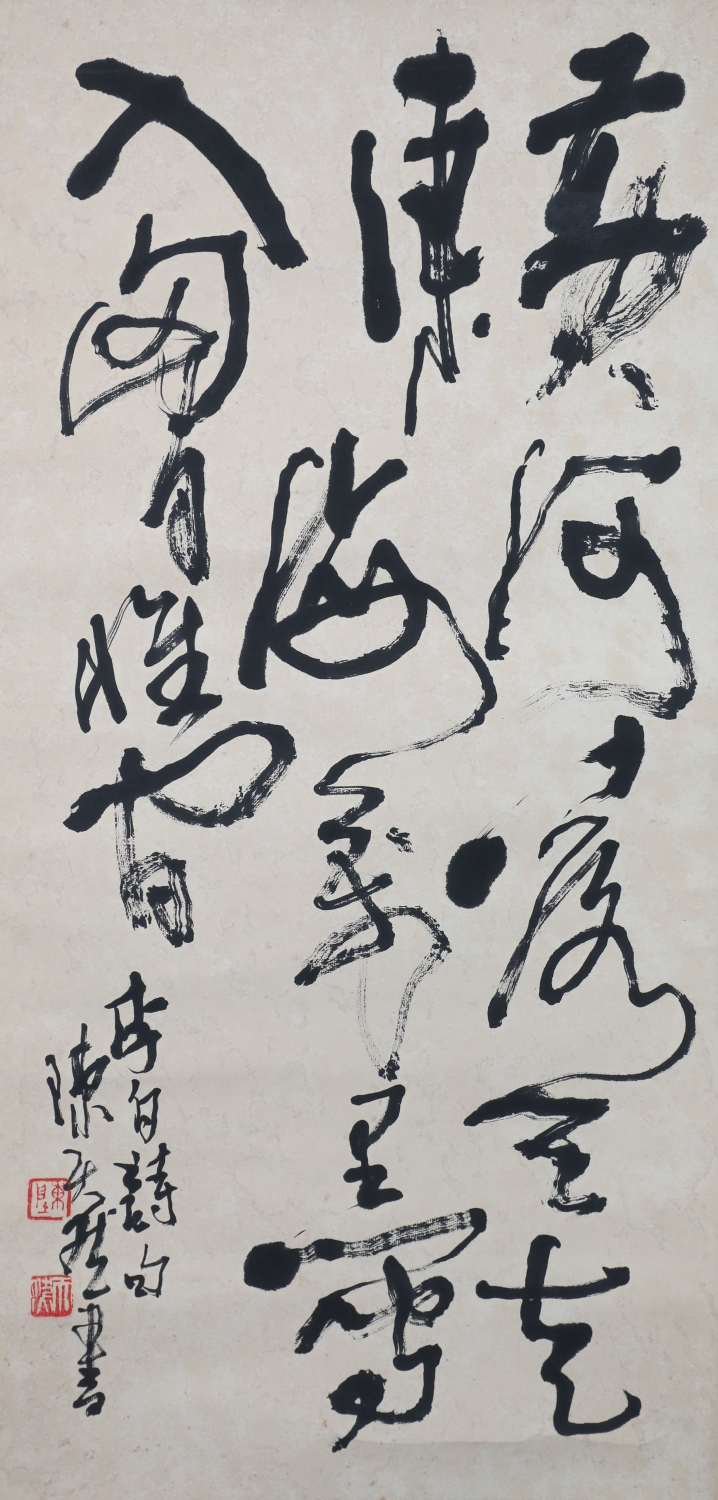 黃河落天走
東海萬里寫
入胷懷間
李白詩句
陳天然書
陳
天然